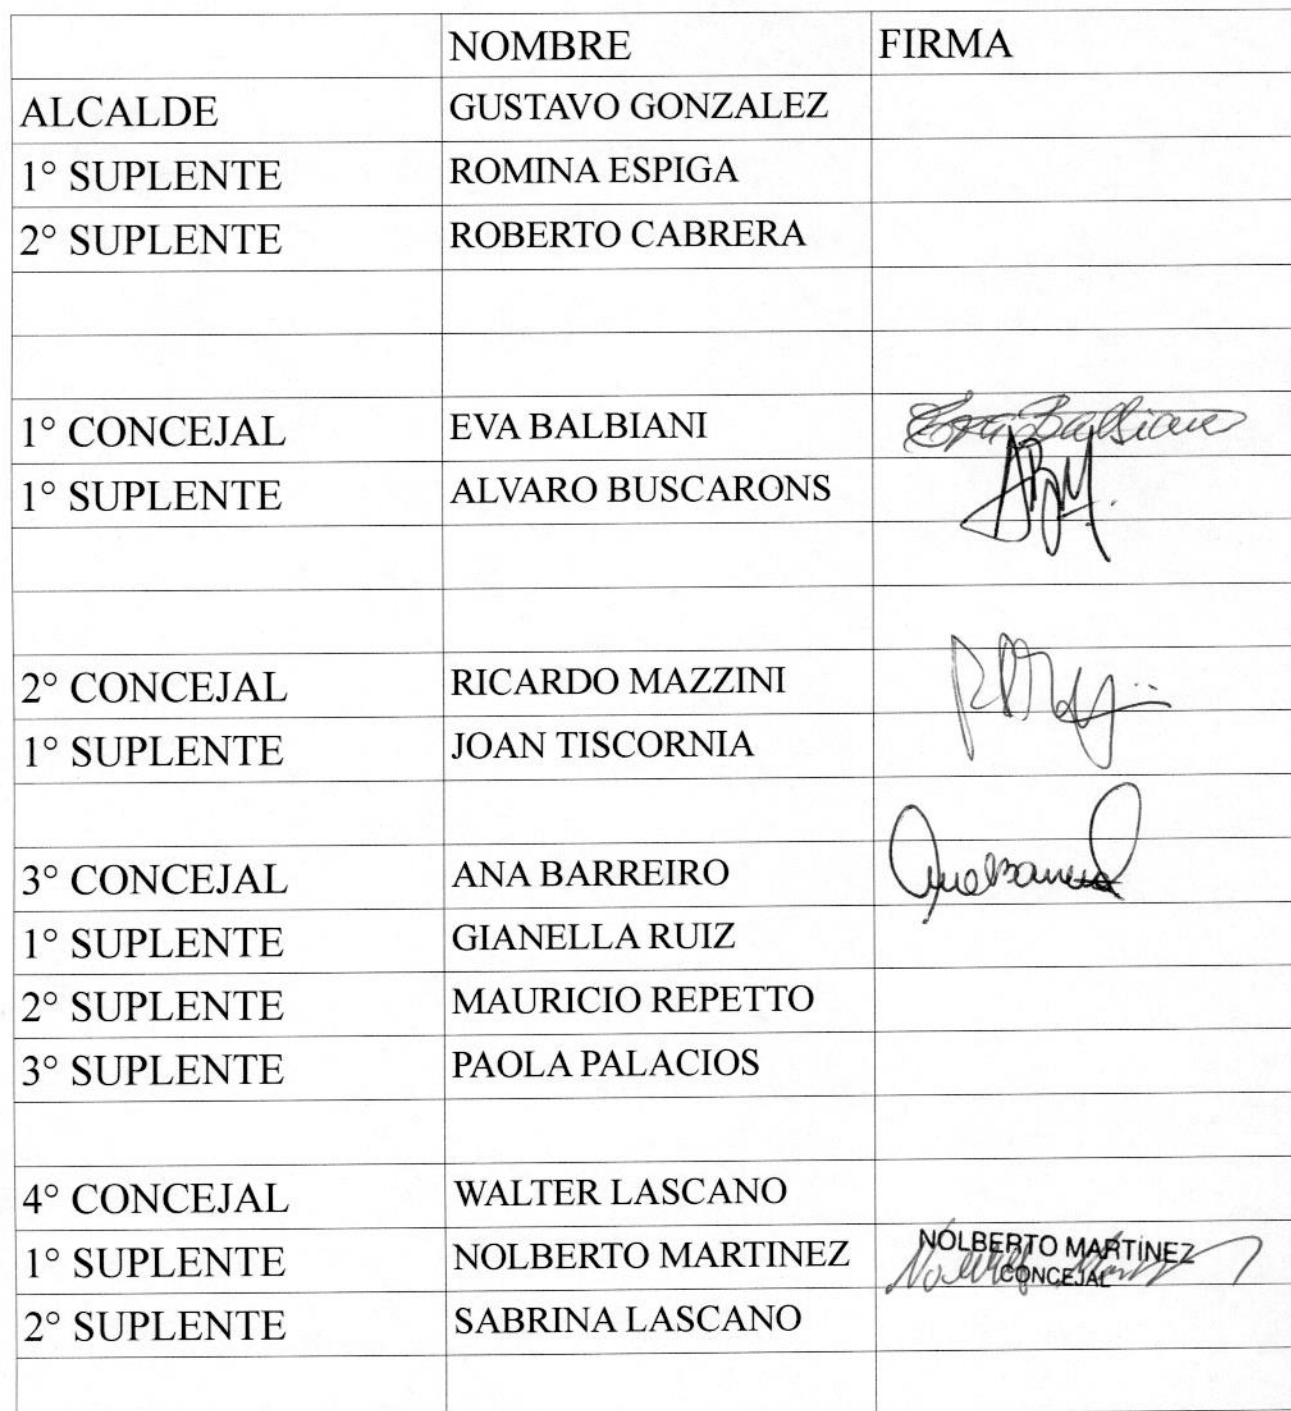 NOMBRE FIRMA
ALCALDE GUSTAVO GONZALEZ
1° SUPLENTE ROMINA ESPIGA
2° SUPLENTE ROBERTO CABRERA
1° CONCEJAL EVA BALBIANI Eva Balbiani
1° SUPLENTE ALVARO BUSCARONS
2° CONCEJAL RICARDO MAZZINI
1° SUPLENTE JOAN TISCORNIA
3° CONCEJAL ANA BARREIRO
1° SUPLENTE GIANELLA RUIZ
2° SUPLENTE MAURICIO REPETTO
3° SUPLENTE PAOLA PALACIOS
4° CONCEJAL WALTER LASCANO
1° SUPLENTE NOLBERTO MARTINEZ NOLBERTO MARTINEZ
CONCEJAL
2° SUPLENTE SABRINA LASCANO